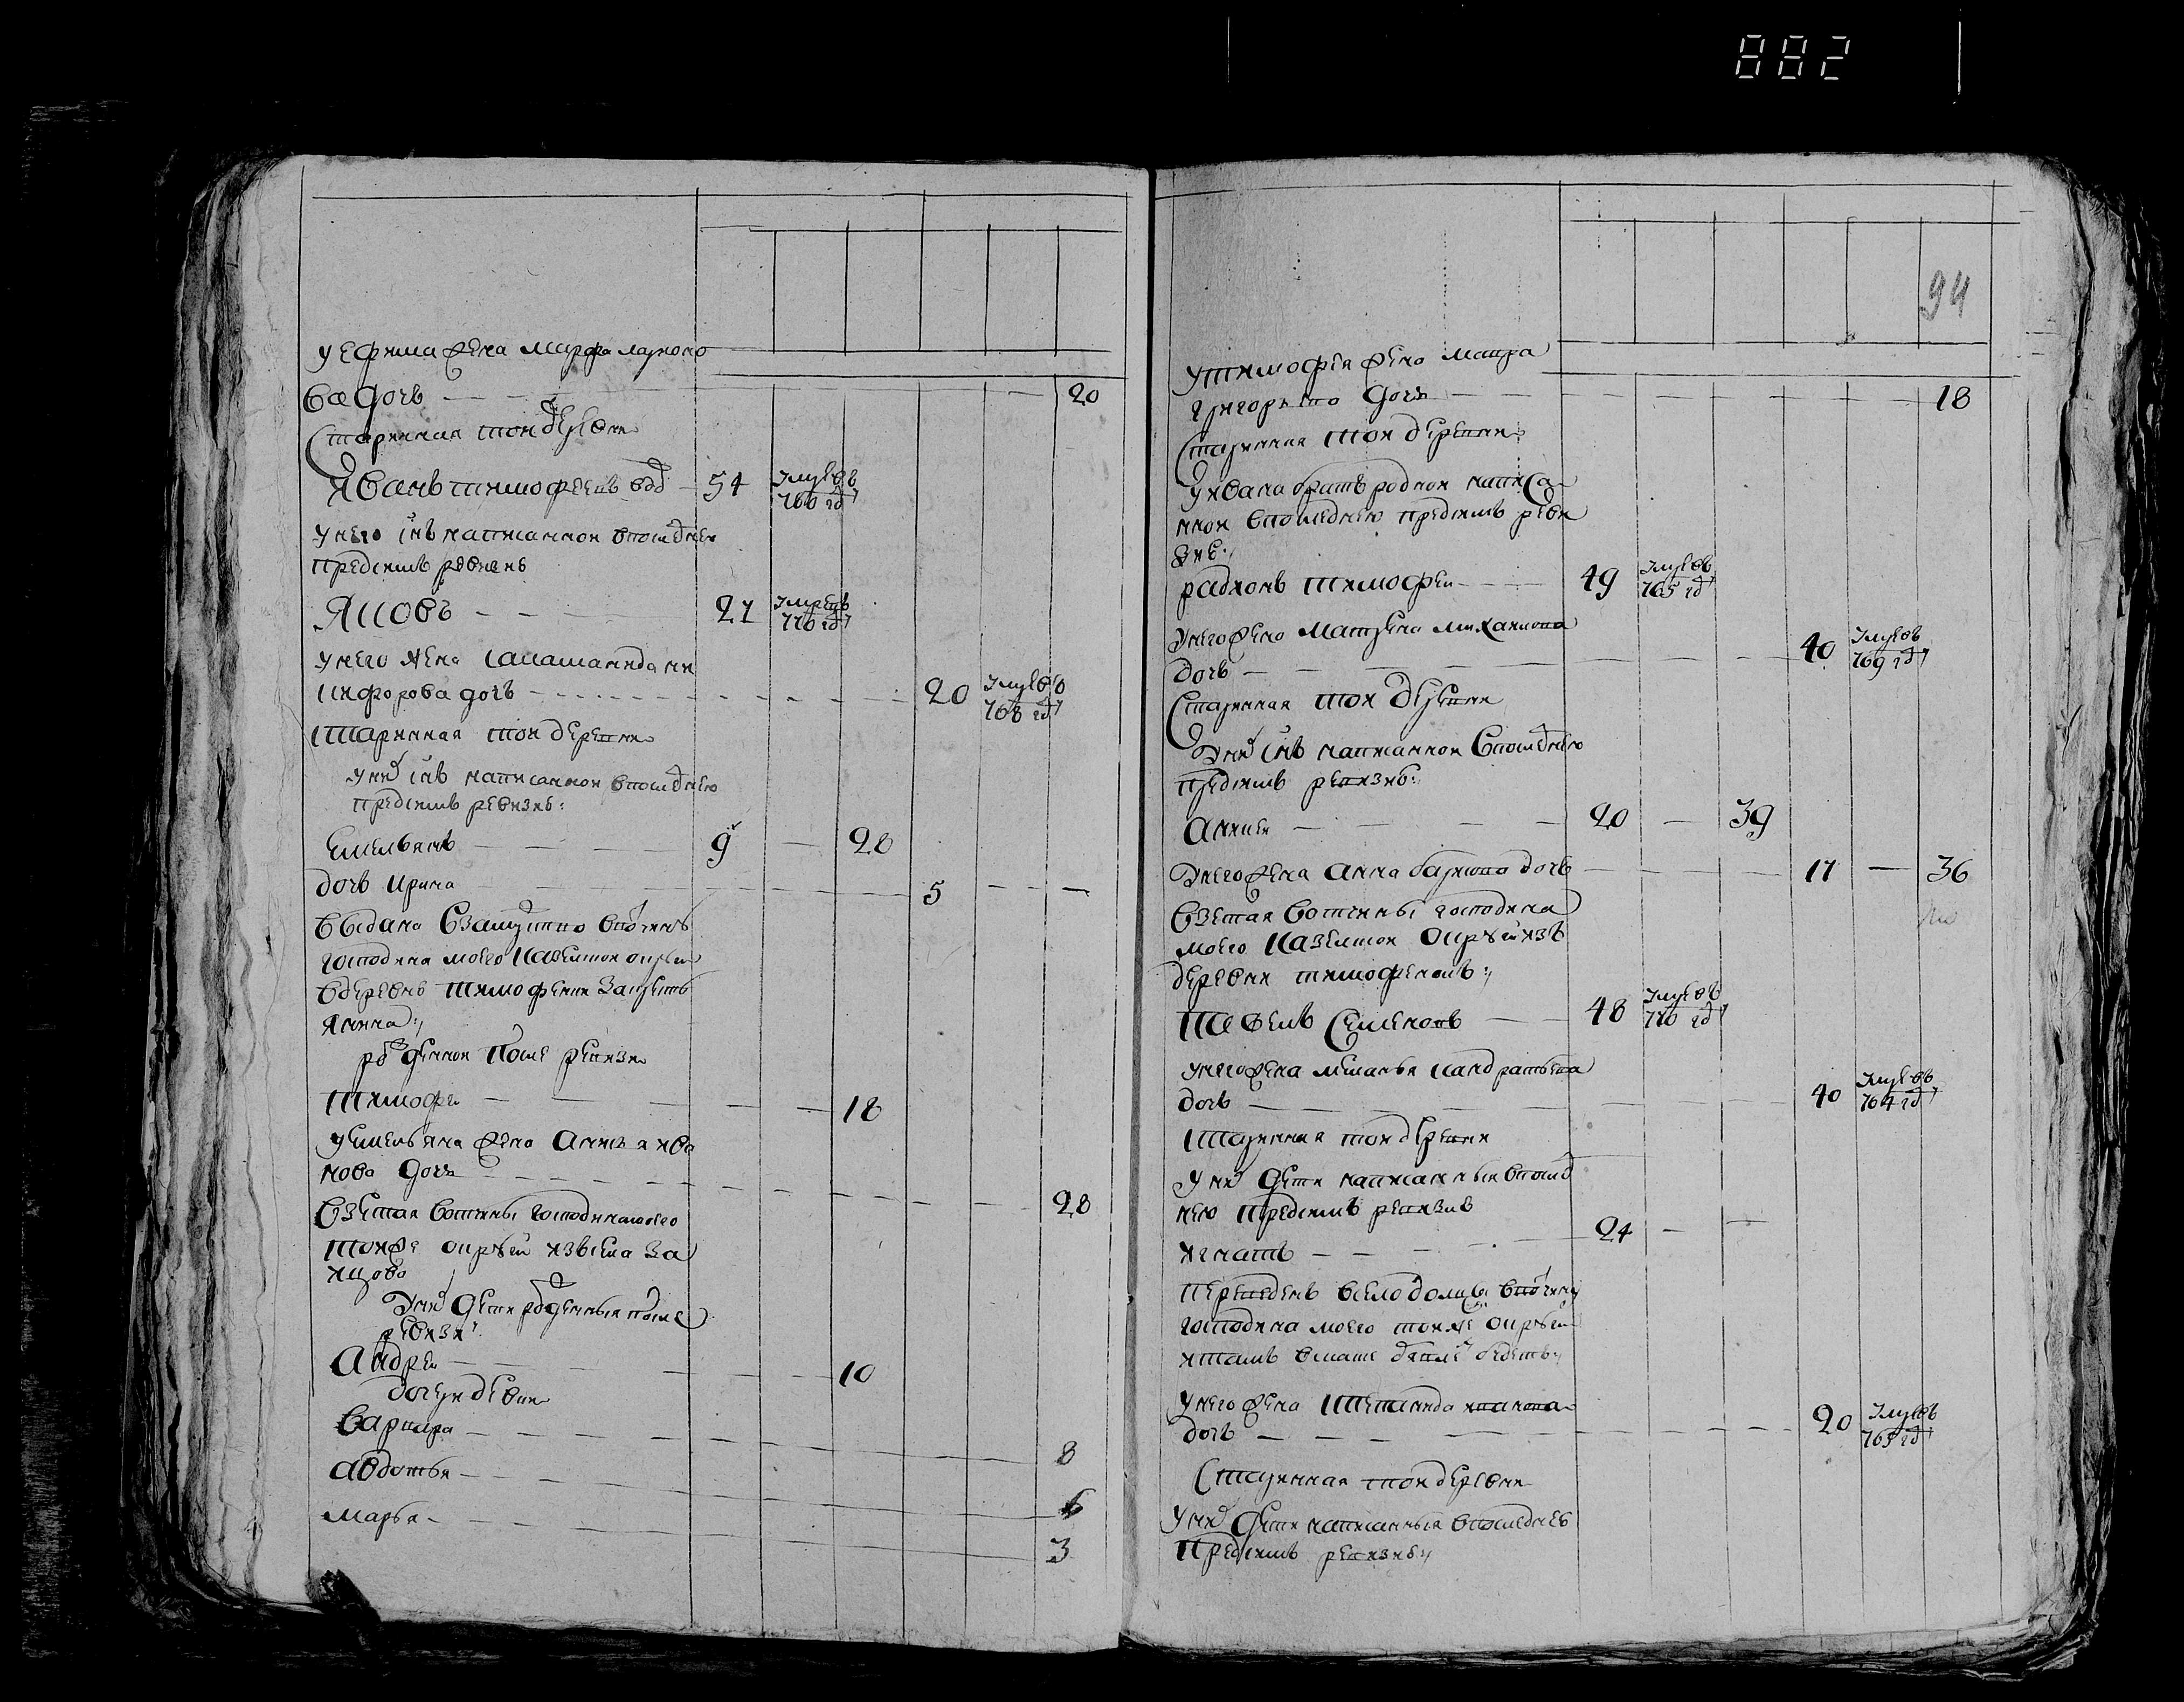 882
у ефима жена марфа ларионо
ва дочь 20
старинная той деревни
Иванъ тимофеевъ вдв 54 умревъ 760 гд
у него снъ написанной впоследней
пред симъ ревизе
Яковъ 21 умревъ 770 гд
у него жена саламанида ни
кифорова дочь 20 умревъ 768 гд
старинная той деревни
у них снъ написанной впоследнею
пред симъ ревизиѣ
емельянъ 9 28
дочь ирина 5
выдана в замужство в вотчинѣ
господина моего казенной
в деревнѣ тимофеева за
рожденной после ревизи
тимофеи 18
у емельяна жена анисья ива
нова дочь 28
взетая вотчины господина моего
тойже округи из села за
ицово
у них дети рожденныя после
ревизи
андреи 10
дочери девки
варвара 8
авдотья 6
марья 3
94
у тимофея жена мавра
григорьева дочь 18
старинная той деревни
у ивана братъ родной написа
нной впоследнею пред симъ реви
зиѣ
радионъ тимофеи 49 умревъ 765 гд
у него жена матрена михаилова
дочь 40 умревъ 769 гд
старинная той деревни
у них снъ написанной впоследнею
пред симъ ревизиѣ
аникеи 20 39
у него жена анна дочь 17 36
взетая вотчины господина
моего казенной округи изъ
деревни тимофеевъ
семеновъ 48 умревъ 770 гд
у него жена меланья кандратьева
дочь 40 умревъ 764 гд
старинная той деревни
у них дети написанныя в послед
нею пред симъ ревизиѣ
игнатъ 24
переведенъ в село вотчину
господина моего тойже округи
и тамъ в
у него жена степанида иванова
дочь 20 умревъ 765 гд
старинная той деревни
у них дети написанныя впоследнеѣ
пред симъ ревизиѣ